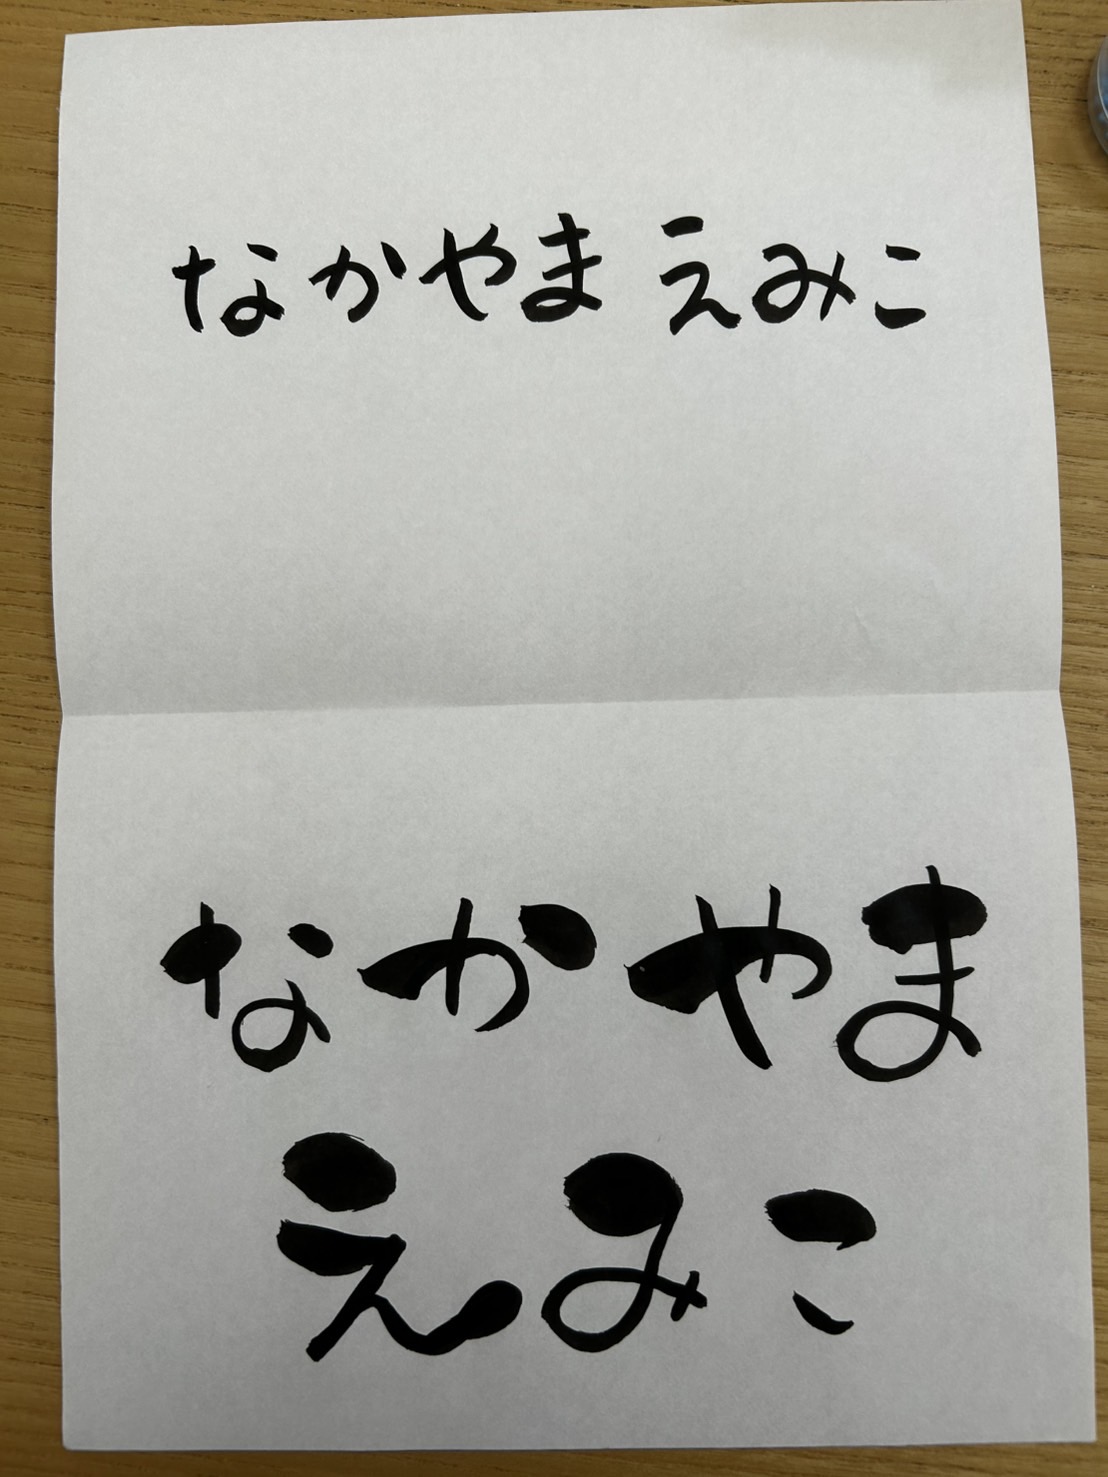 なかやま えみこ
なかやま
えみこ